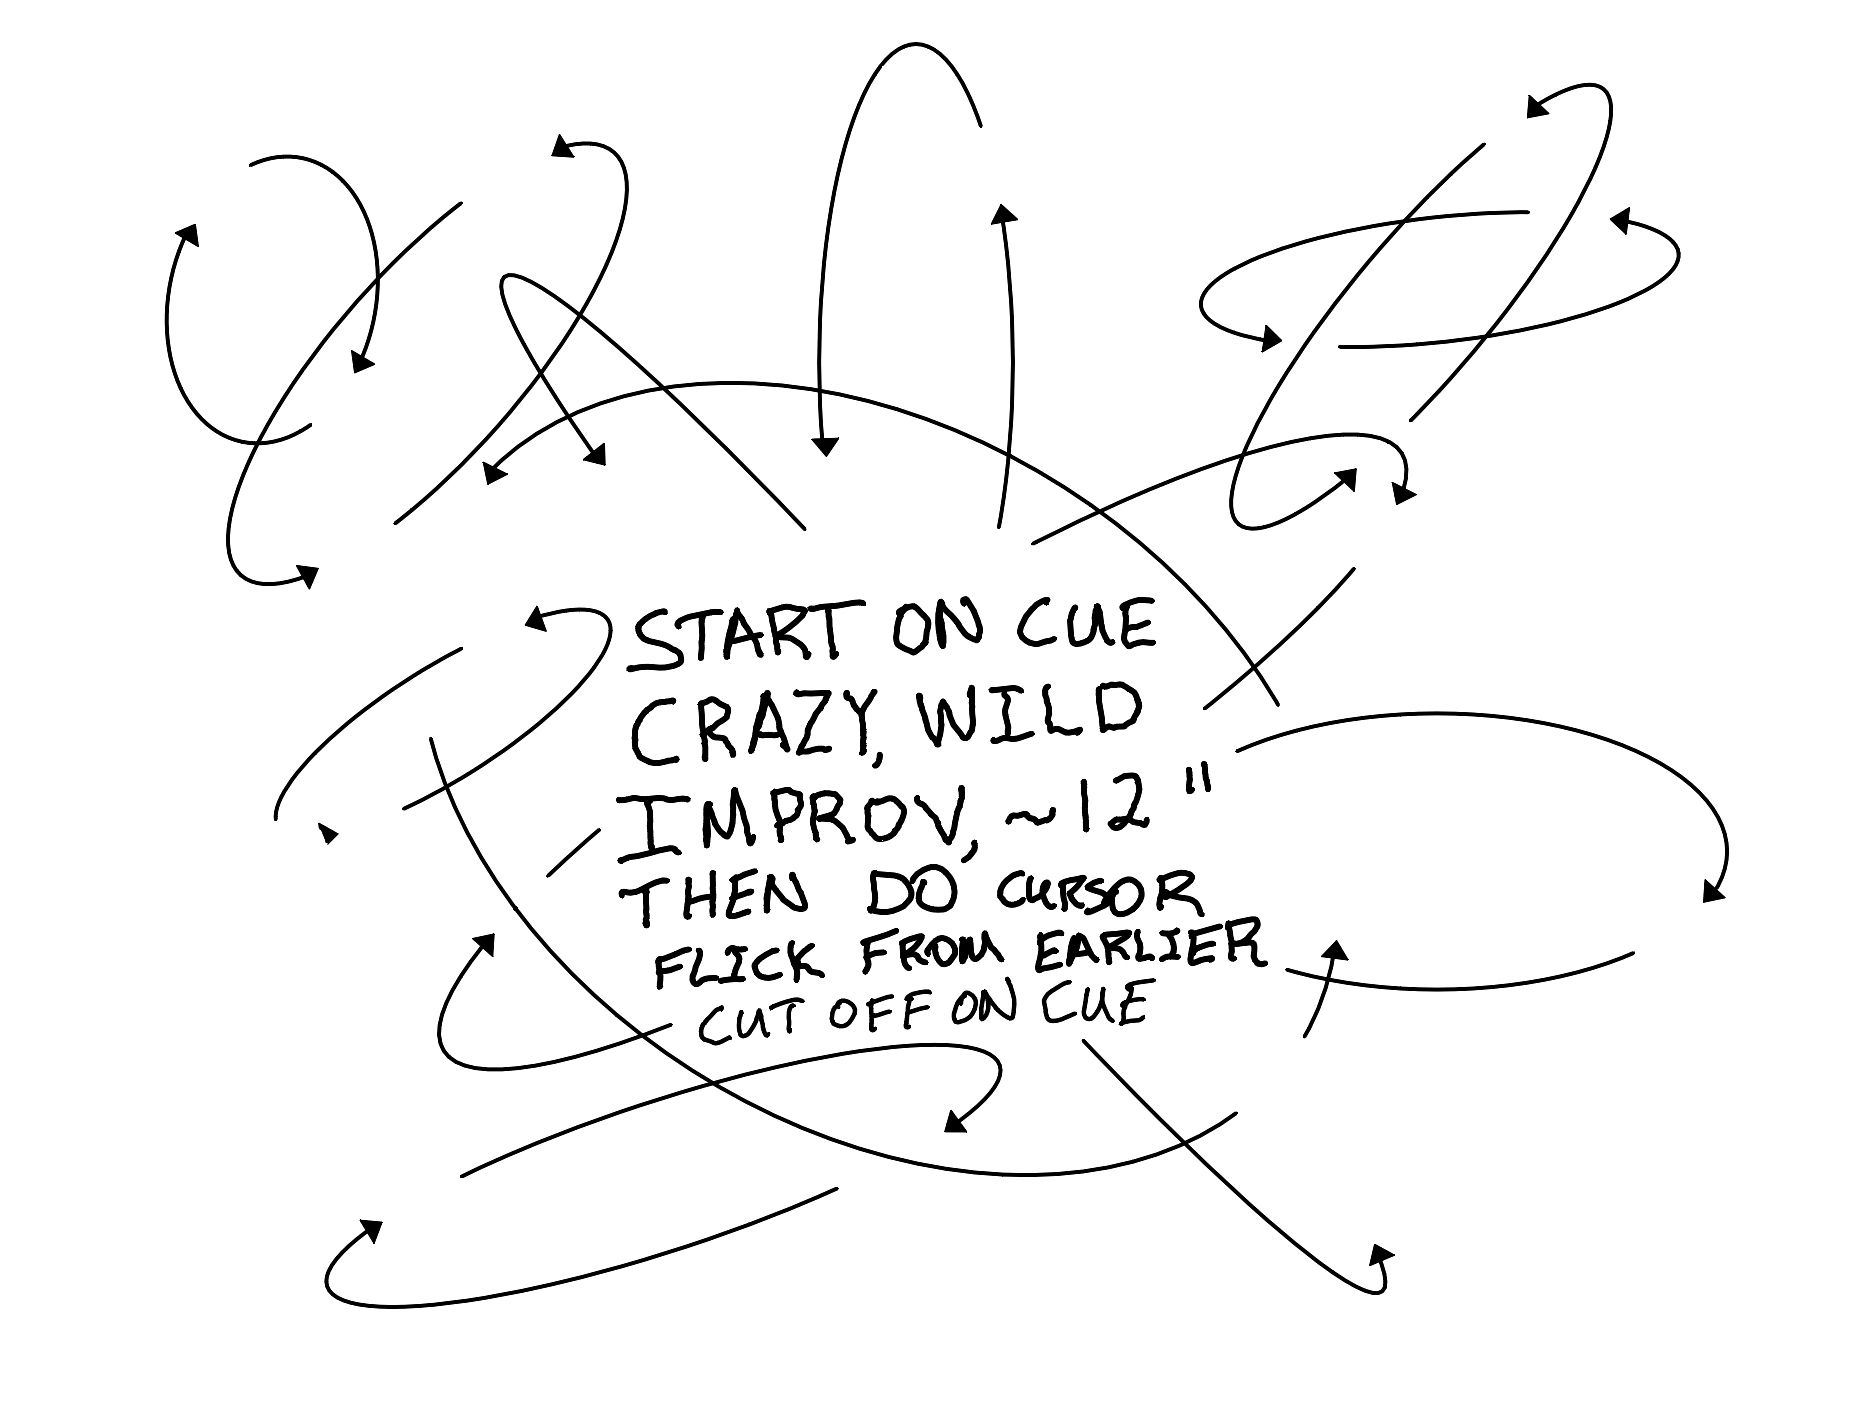 START ON CUE
CRAZY, WILD
IMPROV, ~12"
THEN DO CURSOR
FLICK FROM EARLIER
CUT OFF ON CUE